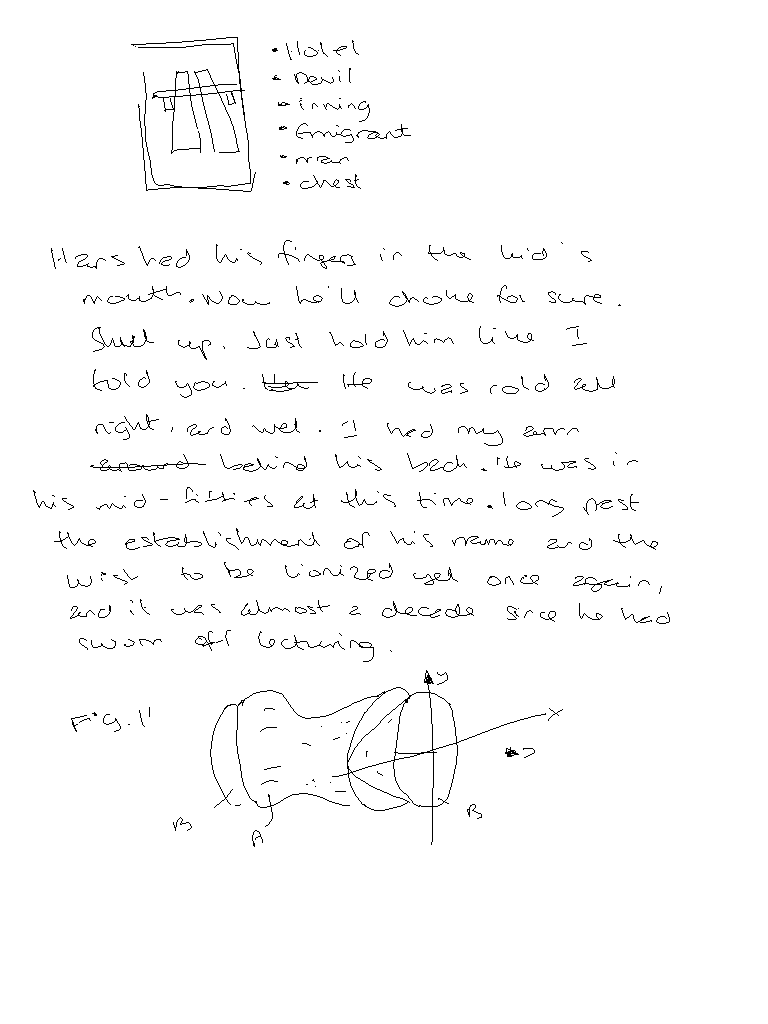 • Hotel
• Devil
• inning
• Emigrant
• man
• chest
Hans had his fingers in the kid's
mouth. Now he'll choke for sure.
Shut up. Just hold him like I
told you. He was cold all
right, and wet. I had my arm
around behind his back. He was in
his mid-fifties at this time. Long past
the establishment of his name and the
wish to be lionized yet once again,
and it was almost a decade since he had
sworn off lecturing.
Fig. 1
y
x
B
A
B